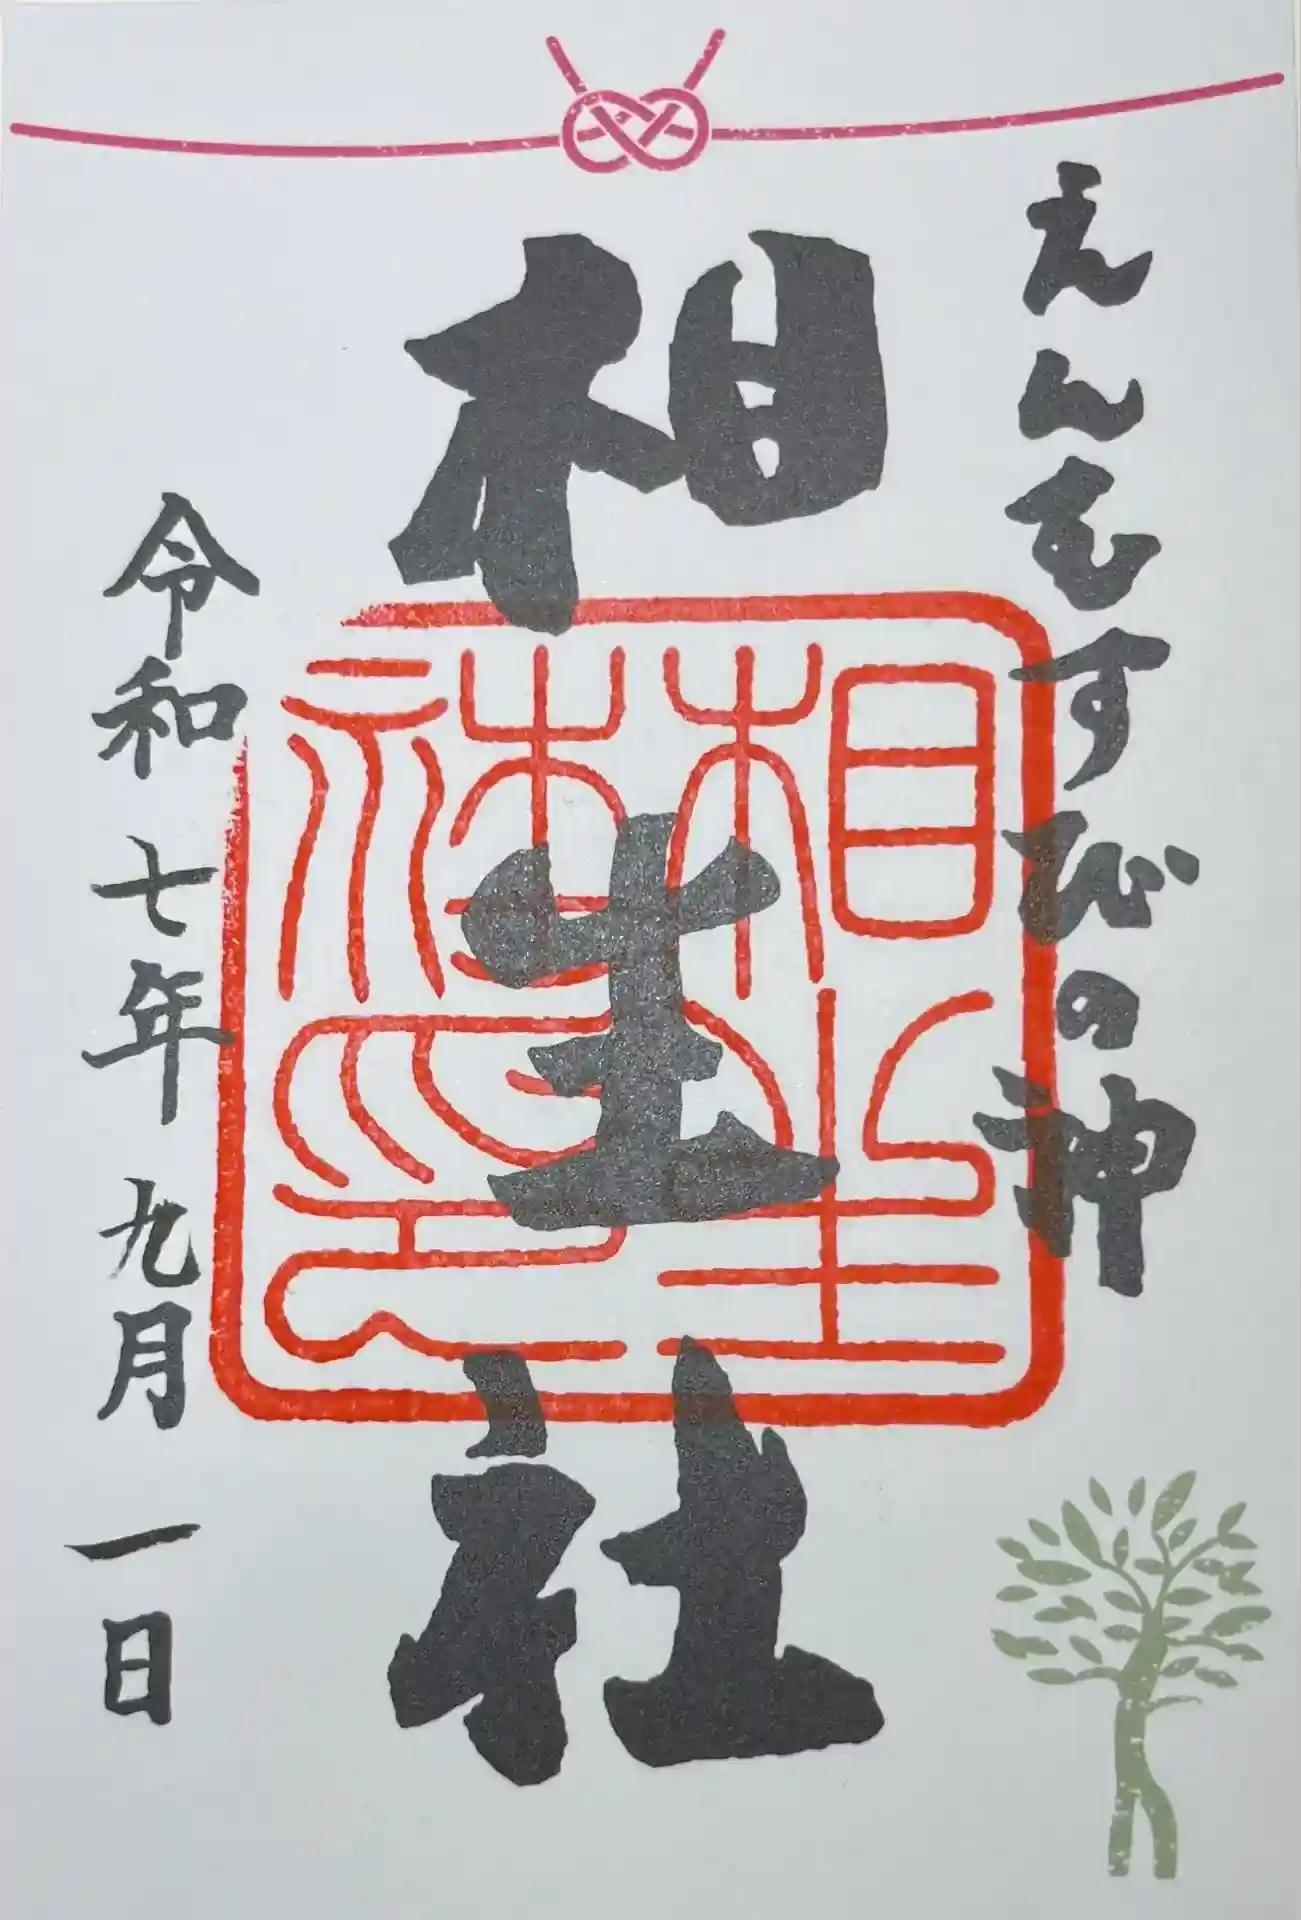 えんむすびの神
相生社
相生社神璽
令和七年九月一日